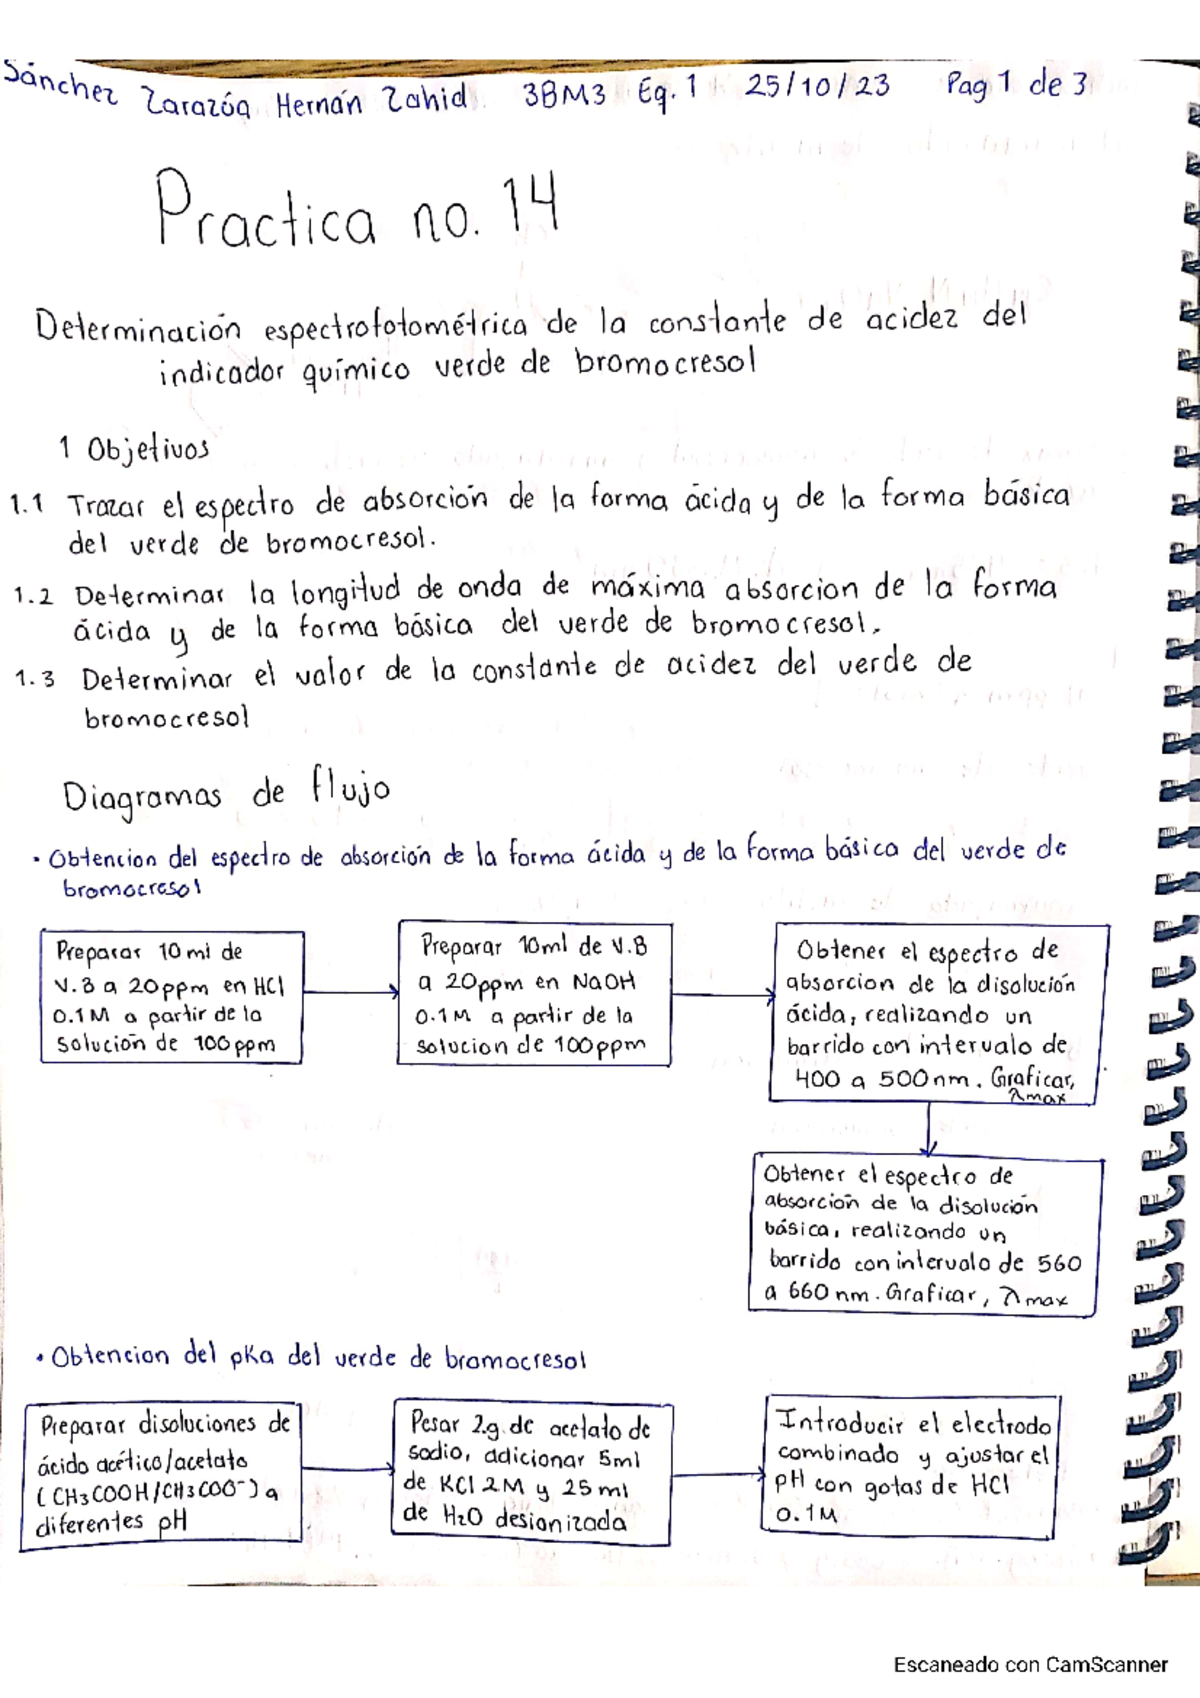 Sánchez Zarazúa Hernán Zahid 3BM3 Eq. 1 25/10/23 Pag 1 de 3
Practica no. 14
Determinación espectrofotométrica de la constante de acidez del
indicador químico verde de bromocresol
1 Objetivos
1.1 Trazar el espectro de absorción de la forma ácida y de la forma básica
del verde de bromocresol.
1.2 Determinar la longitud de onda de máxima absorcion de la forma
ácida y de la forma básica del verde de bromocresol.
1.3 Determinar el valor de la constante de acidez del verde de
bromocresol
Diagramas de flujo
• Obtencion del espectro de absorción de la forma ácida y de la forma básica del verde de
bromocresol
Preparar 10 ml de
V.B a 20ppm en HCl
0.1M a partir de la
solución de 100ppm
Preparar 10ml de V.B
a 20ppm en NaOH
0.1M a partir de la
solucion de 100ppm
Obtener el espectro de
absorcion de la disolución
ácida, realizando un
barrido con intervalo de
400 a 500nm. Graficar,
λmax
Obtener el espectro de
absorción de la disolución
básica, realizando un
barrido con intervalo de 560
a 660nm. Graficar, λmax
• Obtencion del pKa del verde de bromocresol
Preparar disoluciones de
ácido acético/acetato
(CH3COOH/CH3COO⁻) a
diferentes pH
Pesar 2g. de acetato de
sodio, adicionar 5ml
de KCl 2M y 25ml
de H2O desionizada
Introducir el electrodo
combinado y ajustar el
pH con gotas de HCl
0.1M
Escaneado con CamScanner